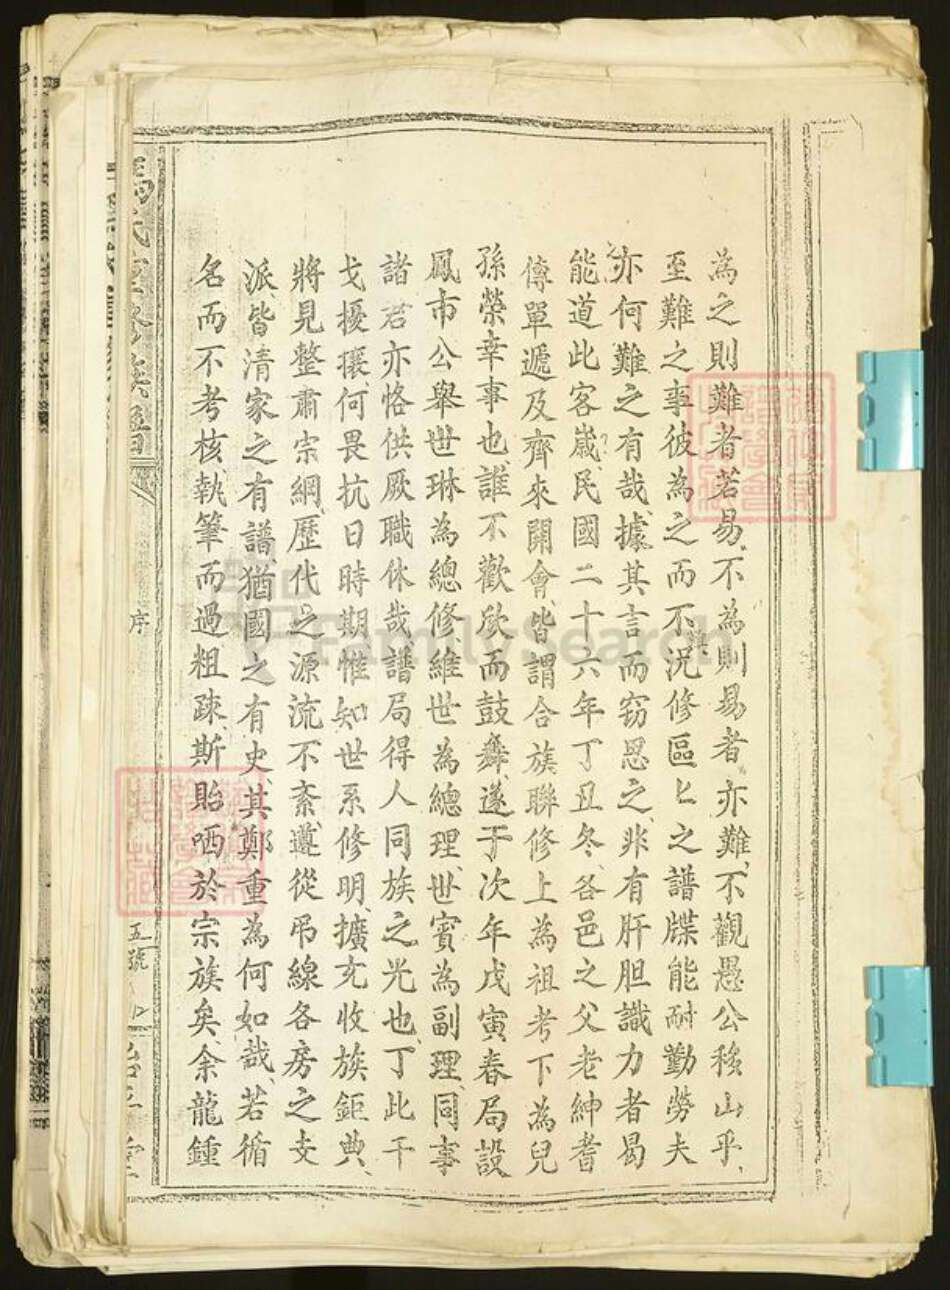 為之則難者若易不為則易者亦難不觀愚公移山乎
至難之事彼為之而不況修區匕之譜牒能耐勤勞夫
亦何難之有哉據其言而窃思之非有肝胆識力者曷
能道此客嵗民國二十六年丁丑冬各邑之父老紳耆
傳單遞及齊來開會皆謂合族聯修上為祖考下為兒
孫榮幸事也誰不歡欣而鼓舞遂于次年戊寅春局設
鳳市公舉世琳為總修維世為總理世賓為副理同事
諸君亦恪供厥職休哉譜局得人同族之光也丁此干
戈擾攘何畏抗日時期惟知世系修明擴充收族鉅典
將見整肅宗綱歷代之源流不紊遵從吊線各房之支
派皆清家之有譜猶國之有史其鄭重為何如哉若循
名而不考核執筆而過粗疎斯貽哂於宗族矣余龍鍾
馮氏 修族譜
序
五號
FamilySearch